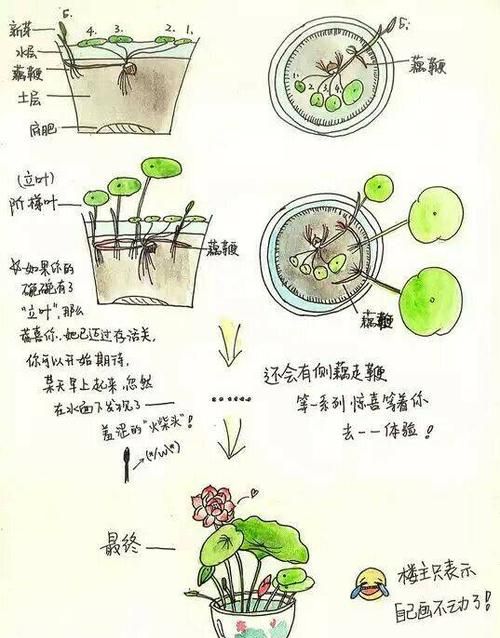 5.
4. 3. 2. 1.
新芽
水层
藕鞭
土层
底肥
5.
藕鞭
1. 2. 3. 4.
(立叶)
阶梯叶
藕鞭
藕鞭
如果你的
碗碗有了
"立叶",那么
恭喜你,她已迈过存活关,
你可以开始期待,
某天早上起来,忽然
在水面下发现了——
羞涩的"火柴头"!
(*/ω\*)
......
还会有侧藕走鞭
等一系列惊喜等着你
去一一体验!
最终——
楼主只表示
自己画不动了!